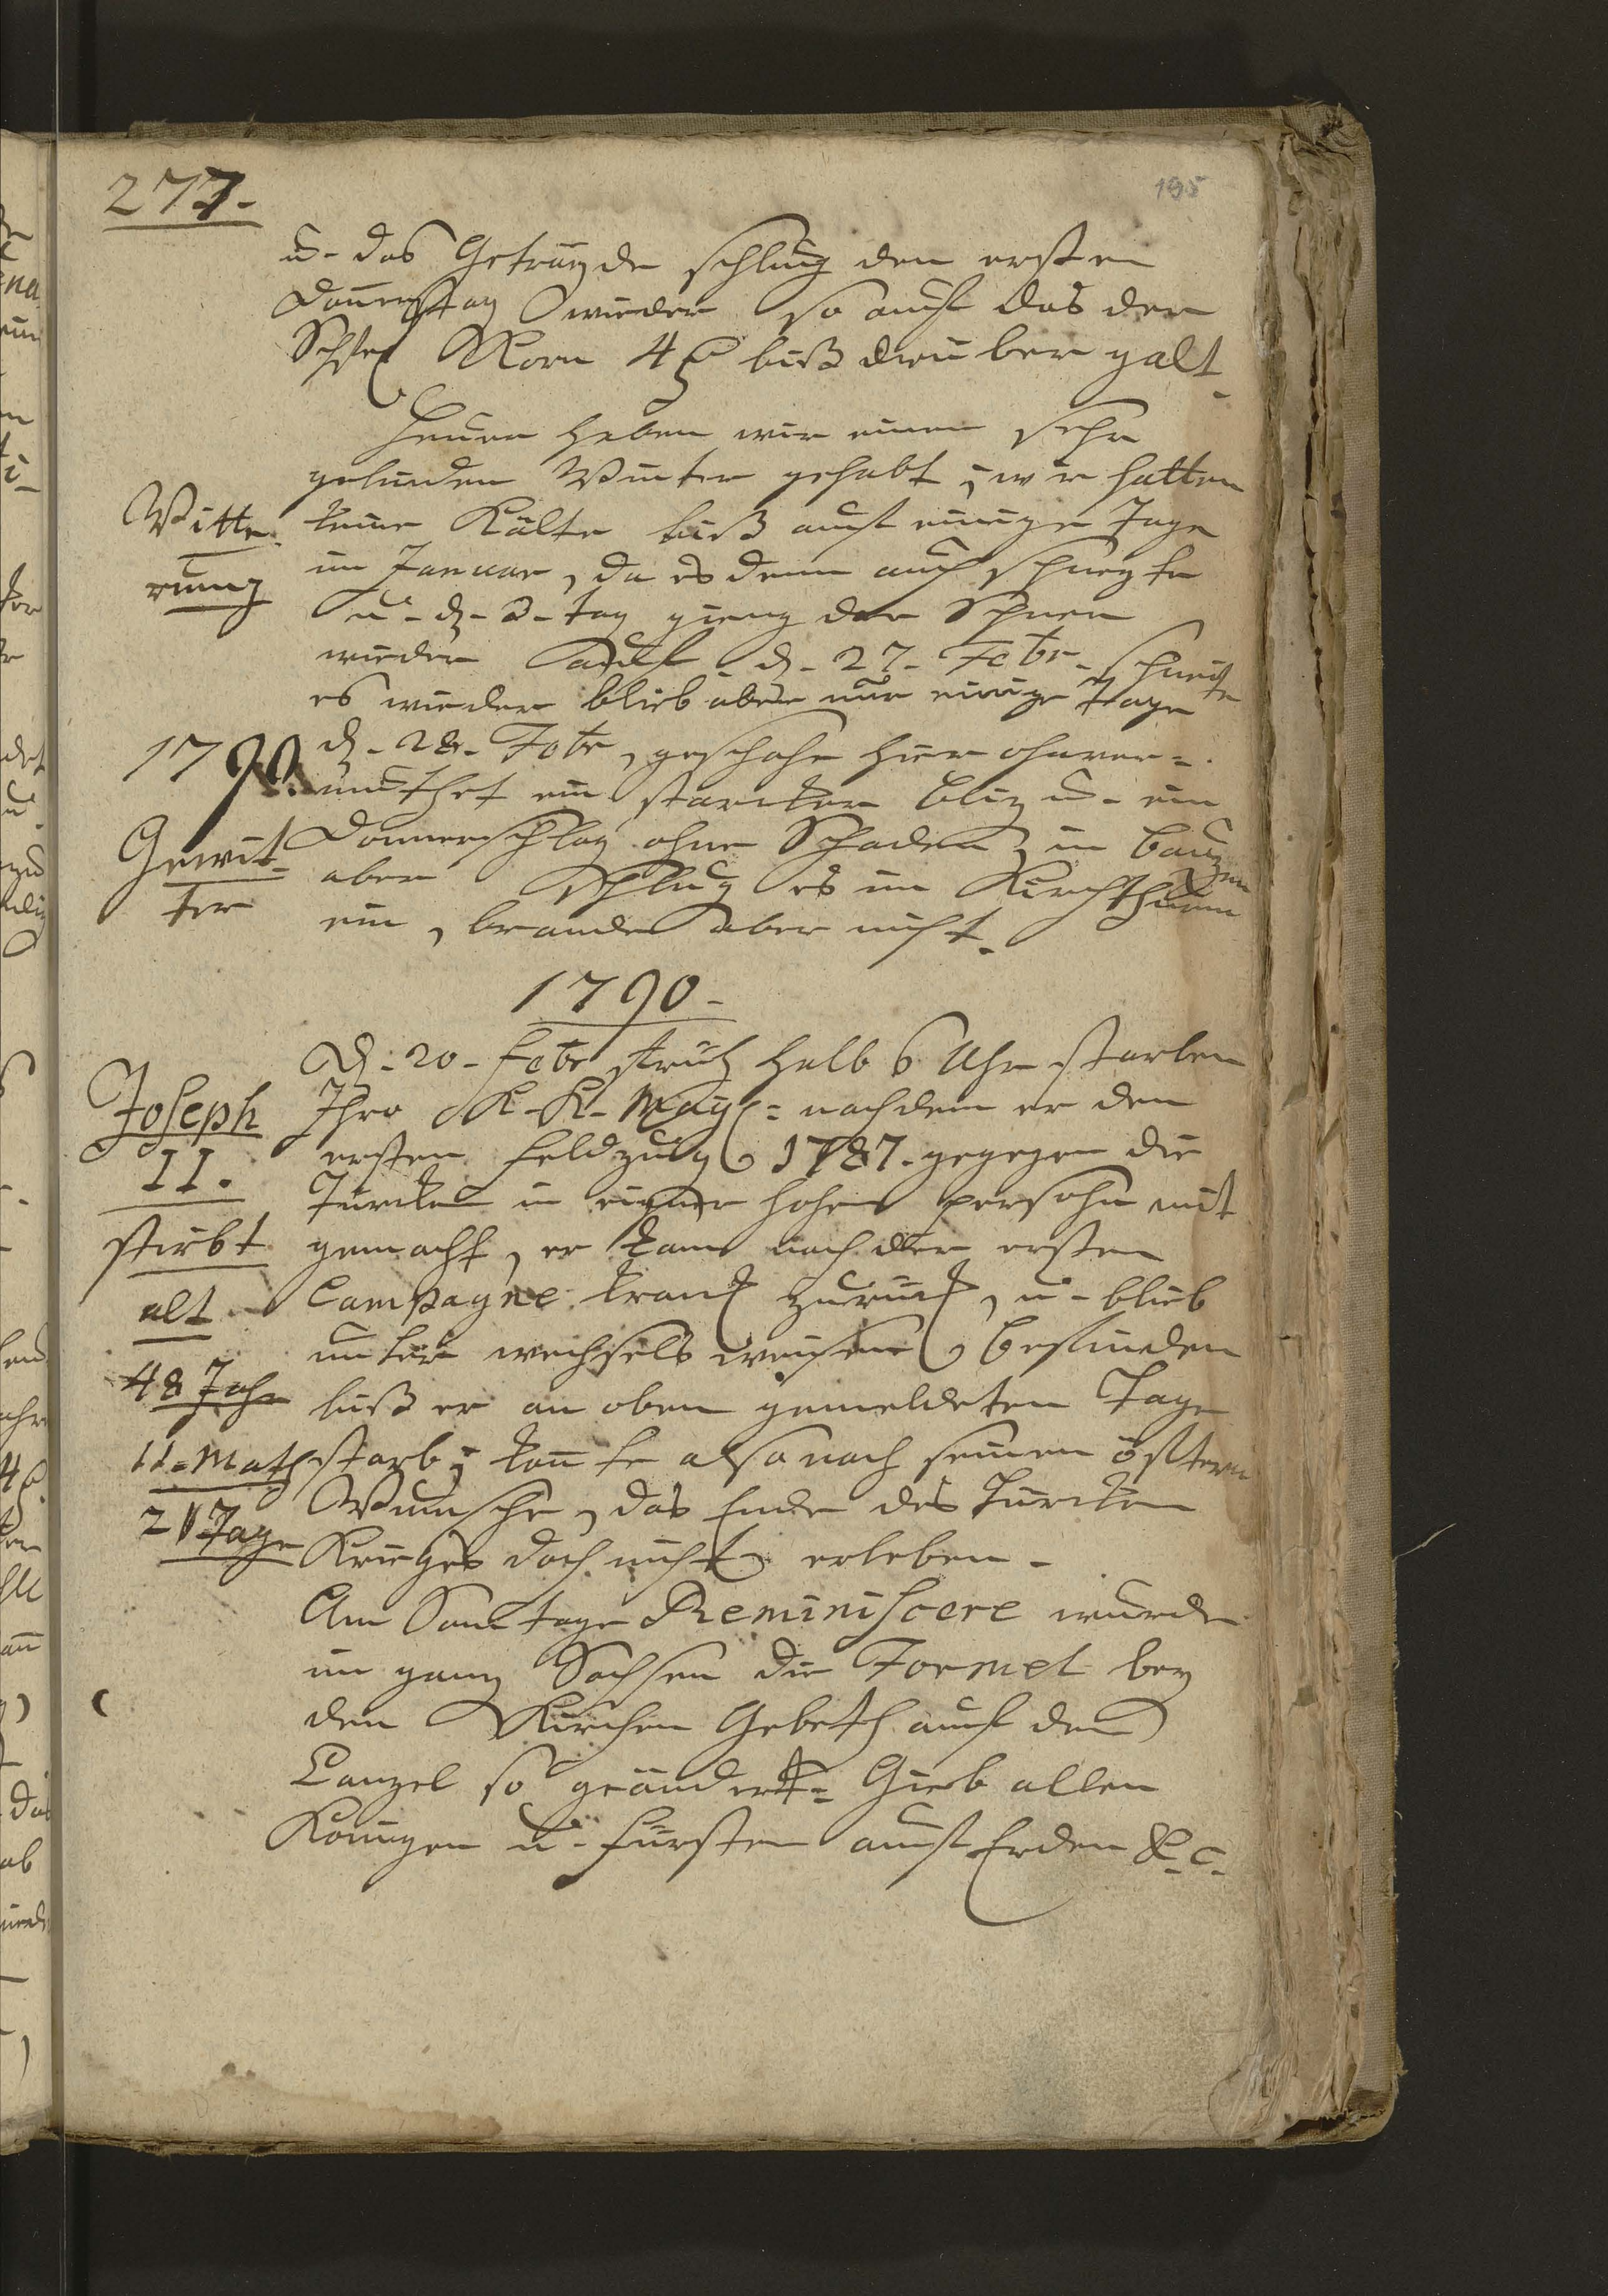 277.
195
u. das Getraÿde schlug den ersten
Donnerstag wieder so auf das der
Schfl Korn 4 biß drüber galt.
Heuer haben wir einen sehr
gelinden Winter gehabt, wir hatten
Witte-
rung
keine Kälte biß auf einige Tage
im Januar, da es denn auch schneÿte
u. d. 3. tag gieng der Schnee
wieder auf d. 27. Febr. schneite
es wieder blieb aber nur einige Tage
1790.
d. 28. Febr, geschahe hier ohnver=
muthet ein starcker Bliz u. ein
Gewit-
ter
Donnerschlag ohne Schaden, in Bauzen
aber schlug es im Kirchthurm
ein, brande aber nicht.
1790.
D. 20. Febr früh halb 6 Uhr starben
Joseph
II.
stirbt
alt
48 Jahr
11. Math
21 Tage
Ihro K. K. May: nachdem er den
ersten Feldzug 1787. gegegen die
Türcken in eigner hohen persohn mit
gemacht, er kam nach der ersten
Campagne kranck zurück, u. blieb
unter wechsels weisen befinden
biß er an oben gemeldeten Tage
starb, konte also nach seinen öfftern
Wunsche, das Ende des Türcken
Krieges doch nicht erleben.
Am Sontage Reminiscere wurde
in ganz Sachsen die Formel beÿ
den Kirchen Gebeth auf der
Canzel so geändert: Gieb allen
Königen u. Fürsten auf Erden &. c.